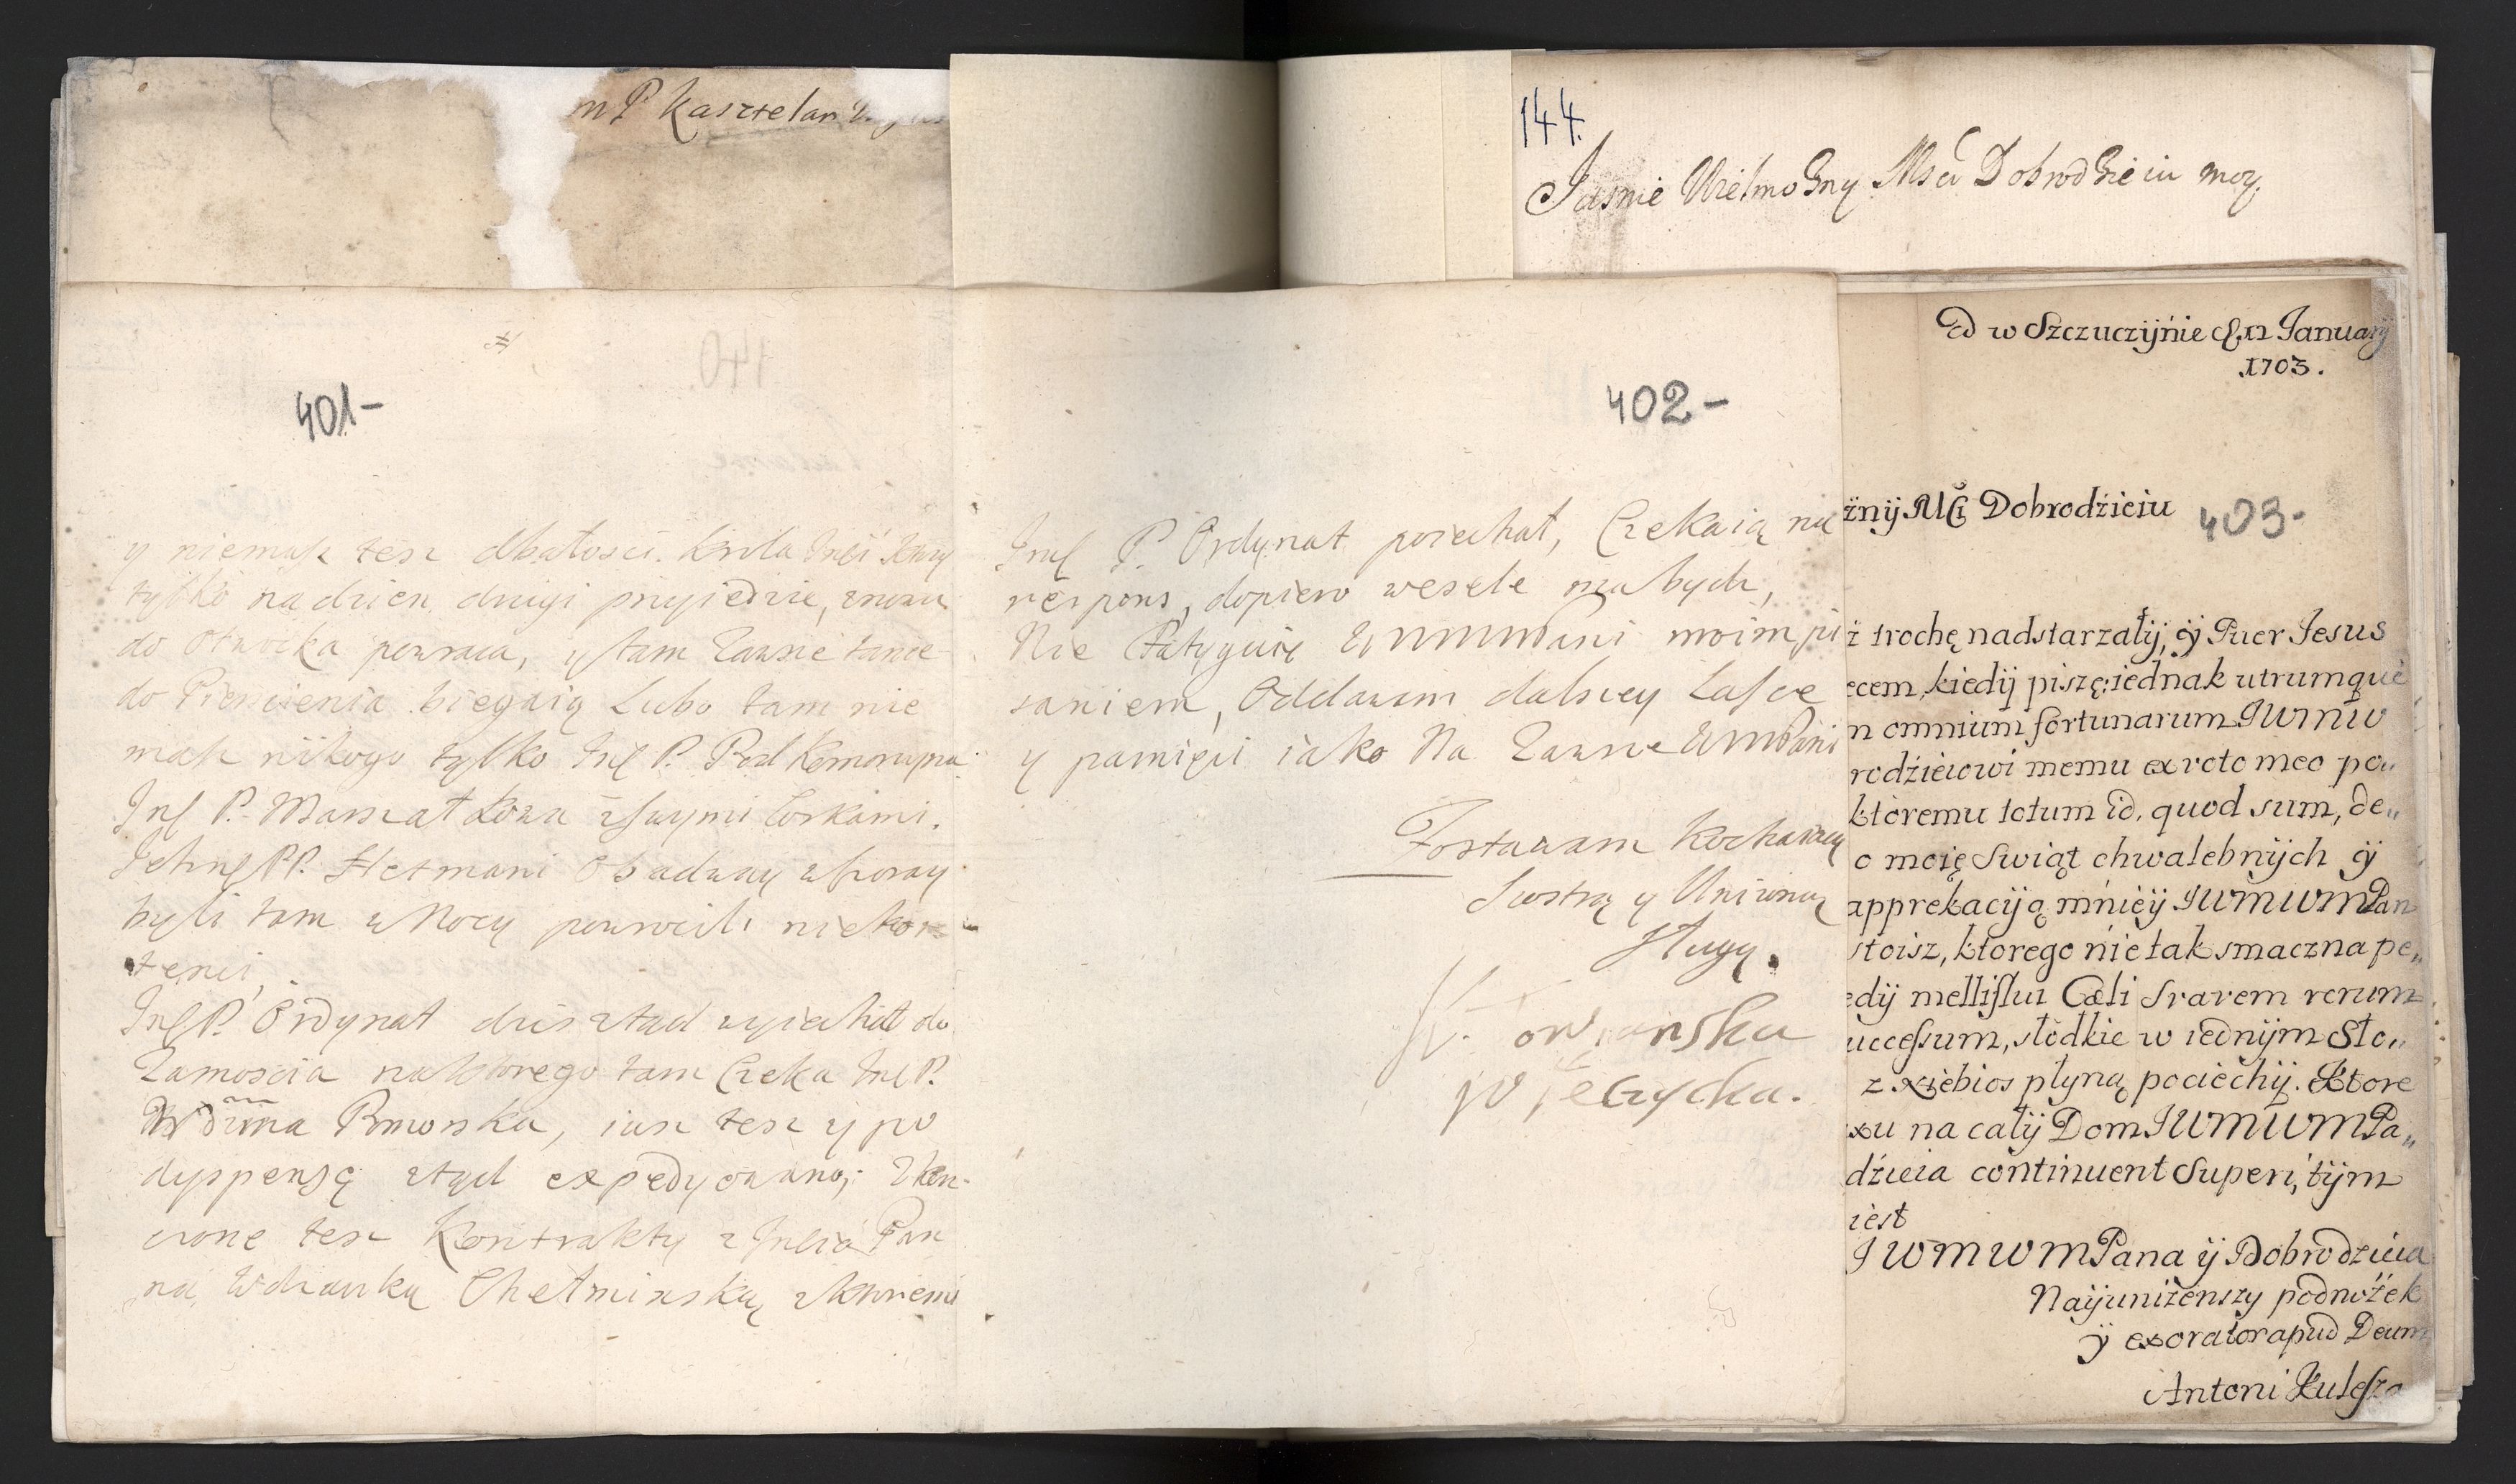 m P Kasztelan
144.
Jasnie Wielmożny Msci Dobrodzieiu moy
401-
y niemasz tesz dbałosci. Krola Jmci
tylko na dzien drugi przyiedzie, znowu
do Otwocka powraca, y tam Zawsze tance
do Pierscienia biegaią Lubo tam nie
masz nikogo tylko Jmς P. Pod Komorzyna
Jmς P. Marszałkowa zswymi Corkami.
Ichmς PP. Hetmani Obadway
byli tam w Nocy powrocili niekon
tenci,
JmςP. Ordynat dzis ztąd wyiechał do
Zamoscia naktorego tam Czeka JmςP.
Wdzina Bmorska, iusz tesz y po
dyspensę ztąd expedyowano; Zkon-
czone tesz Kontrakty z Jmcią Pan
ną Wdzianką Chełminską
402-
Jmς P. Ordynat poiechał, Czekaią na
respons, dopiero wesele ma bydz,
Nie Fatyguię WMMMPani moim pi
saniem, Oddawam dalszey Łasce
y pamięci iako Na Zawsze WMMPani
Zostawam Kochaiącą
Siostrą y Unizoną
sługą.
Słowianska
W
Dd w Szczuczÿnie d. 12 Januarij
1703.
żnÿ MCi Dobrodźieiu
403-
ż trochę nadstarzałÿ, ÿ Puer Jesus
ecem, kiedÿ piszę: iednak utrumque
n omnium fortunarum JWMW
rodźieiowi memu ex voto meo po„
ktoremu totum id, quod sum, de„
o moię Swiąt chwalebnÿch ÿ
apprekacÿą mnieÿ JWMWMPan
stoisz, ktorego nie tak smaczna pe„
edÿ melliflui Cæli Svavem rerum
uccessum, słodkie w iednÿm Sło„
z xiebios płyną pociechÿ. Ktore
xu na całÿ Dom JWMWMPa„
dźieia continuent Superi, tÿm
iest
JWMWMPana ÿ Dobrodzieia
Naÿuniżenszy podnożek
ÿ exorator apud Deum
Antoni Kulesza